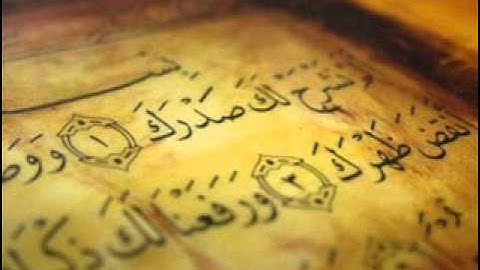 بسم
نَشْرَحْ لَكَ صَدْرَكَ ١ وَوَضَ
أَنقَضَ ظَهْرَكَ ٣ وَرَفَعْنَا لَكَ ذِكْرَ